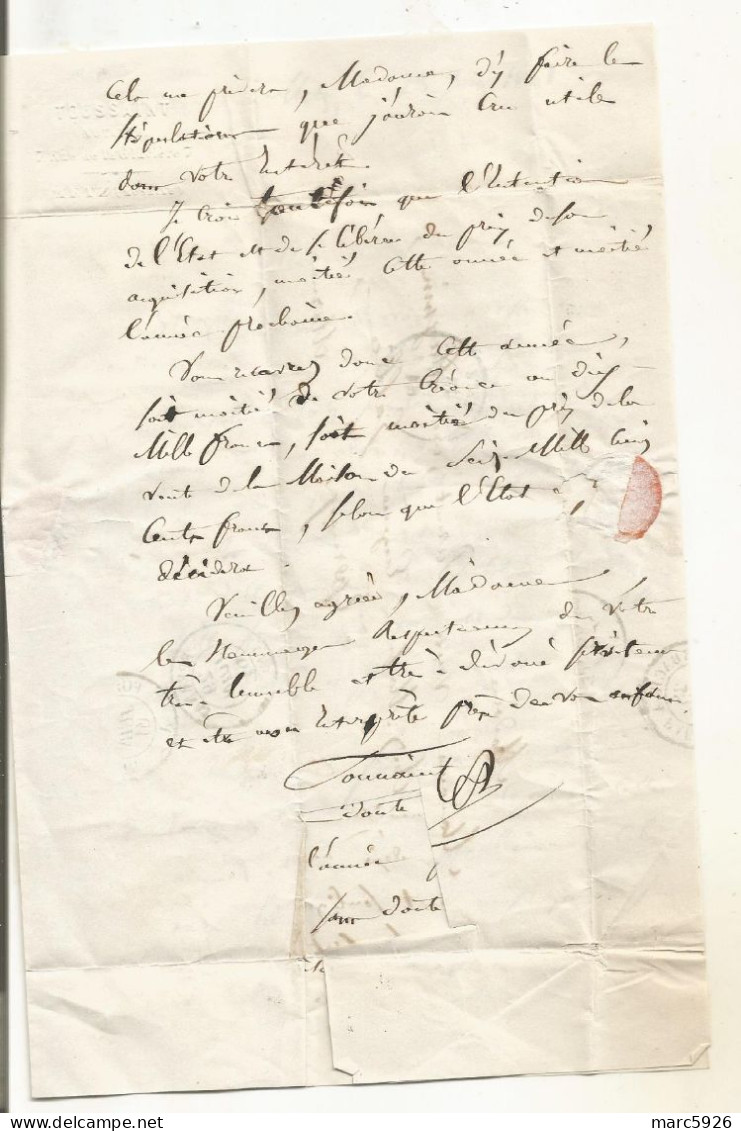 cela me priera, Madame, d'y faire les
stipulations que j'aurois cru utile
dans votre Intérêt.
Je crois toutefois que l'Intention
de l'Etat est de se libérer du prix de son
acquisition, moitié cette année et moitié
l'année prochaine.
Vous recevrez donc cette année,
soit moitié de votre Créance ou dix
Mille francs, soit moitié du prix de la
vente de la Maison de Seize Mille Cinq
Cents francs, selon que l'Etat
décidera.
Veuillez agréer, Madame
les Hommages Respectueux de Votre
très humble et très dévoué serviteur
et être mon Interprète près de vos enfans.
Toussaint
doute
l'année
sans doute
marc5926